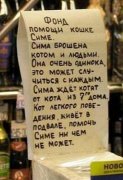 ФОНД
ПОМОЩИ КОШКЕ
СИМЕ.
СИМА БРОШЕНА
КОТОМ И ЛЮДЬМИ.
ОНА ОЧЕНЬ ОДИНОКА,
ЭТО МОЖЕТ СЛУ-
ЧИТЬСЯ С КАЖДЫМ.
СИМА ЖДЁТ КОТЯТ
ОТ КОТА ИЗ 7ГО ДОМА.
КОТ ЛЕГКОГО ПОВЕ-
ДЕНИЯ, ЖИВЁТ В
ПОДВАЛЕ, ПОМОЧЬ
СИМЕ НИ ЧЕМ
НЕ МОЖЕТ.